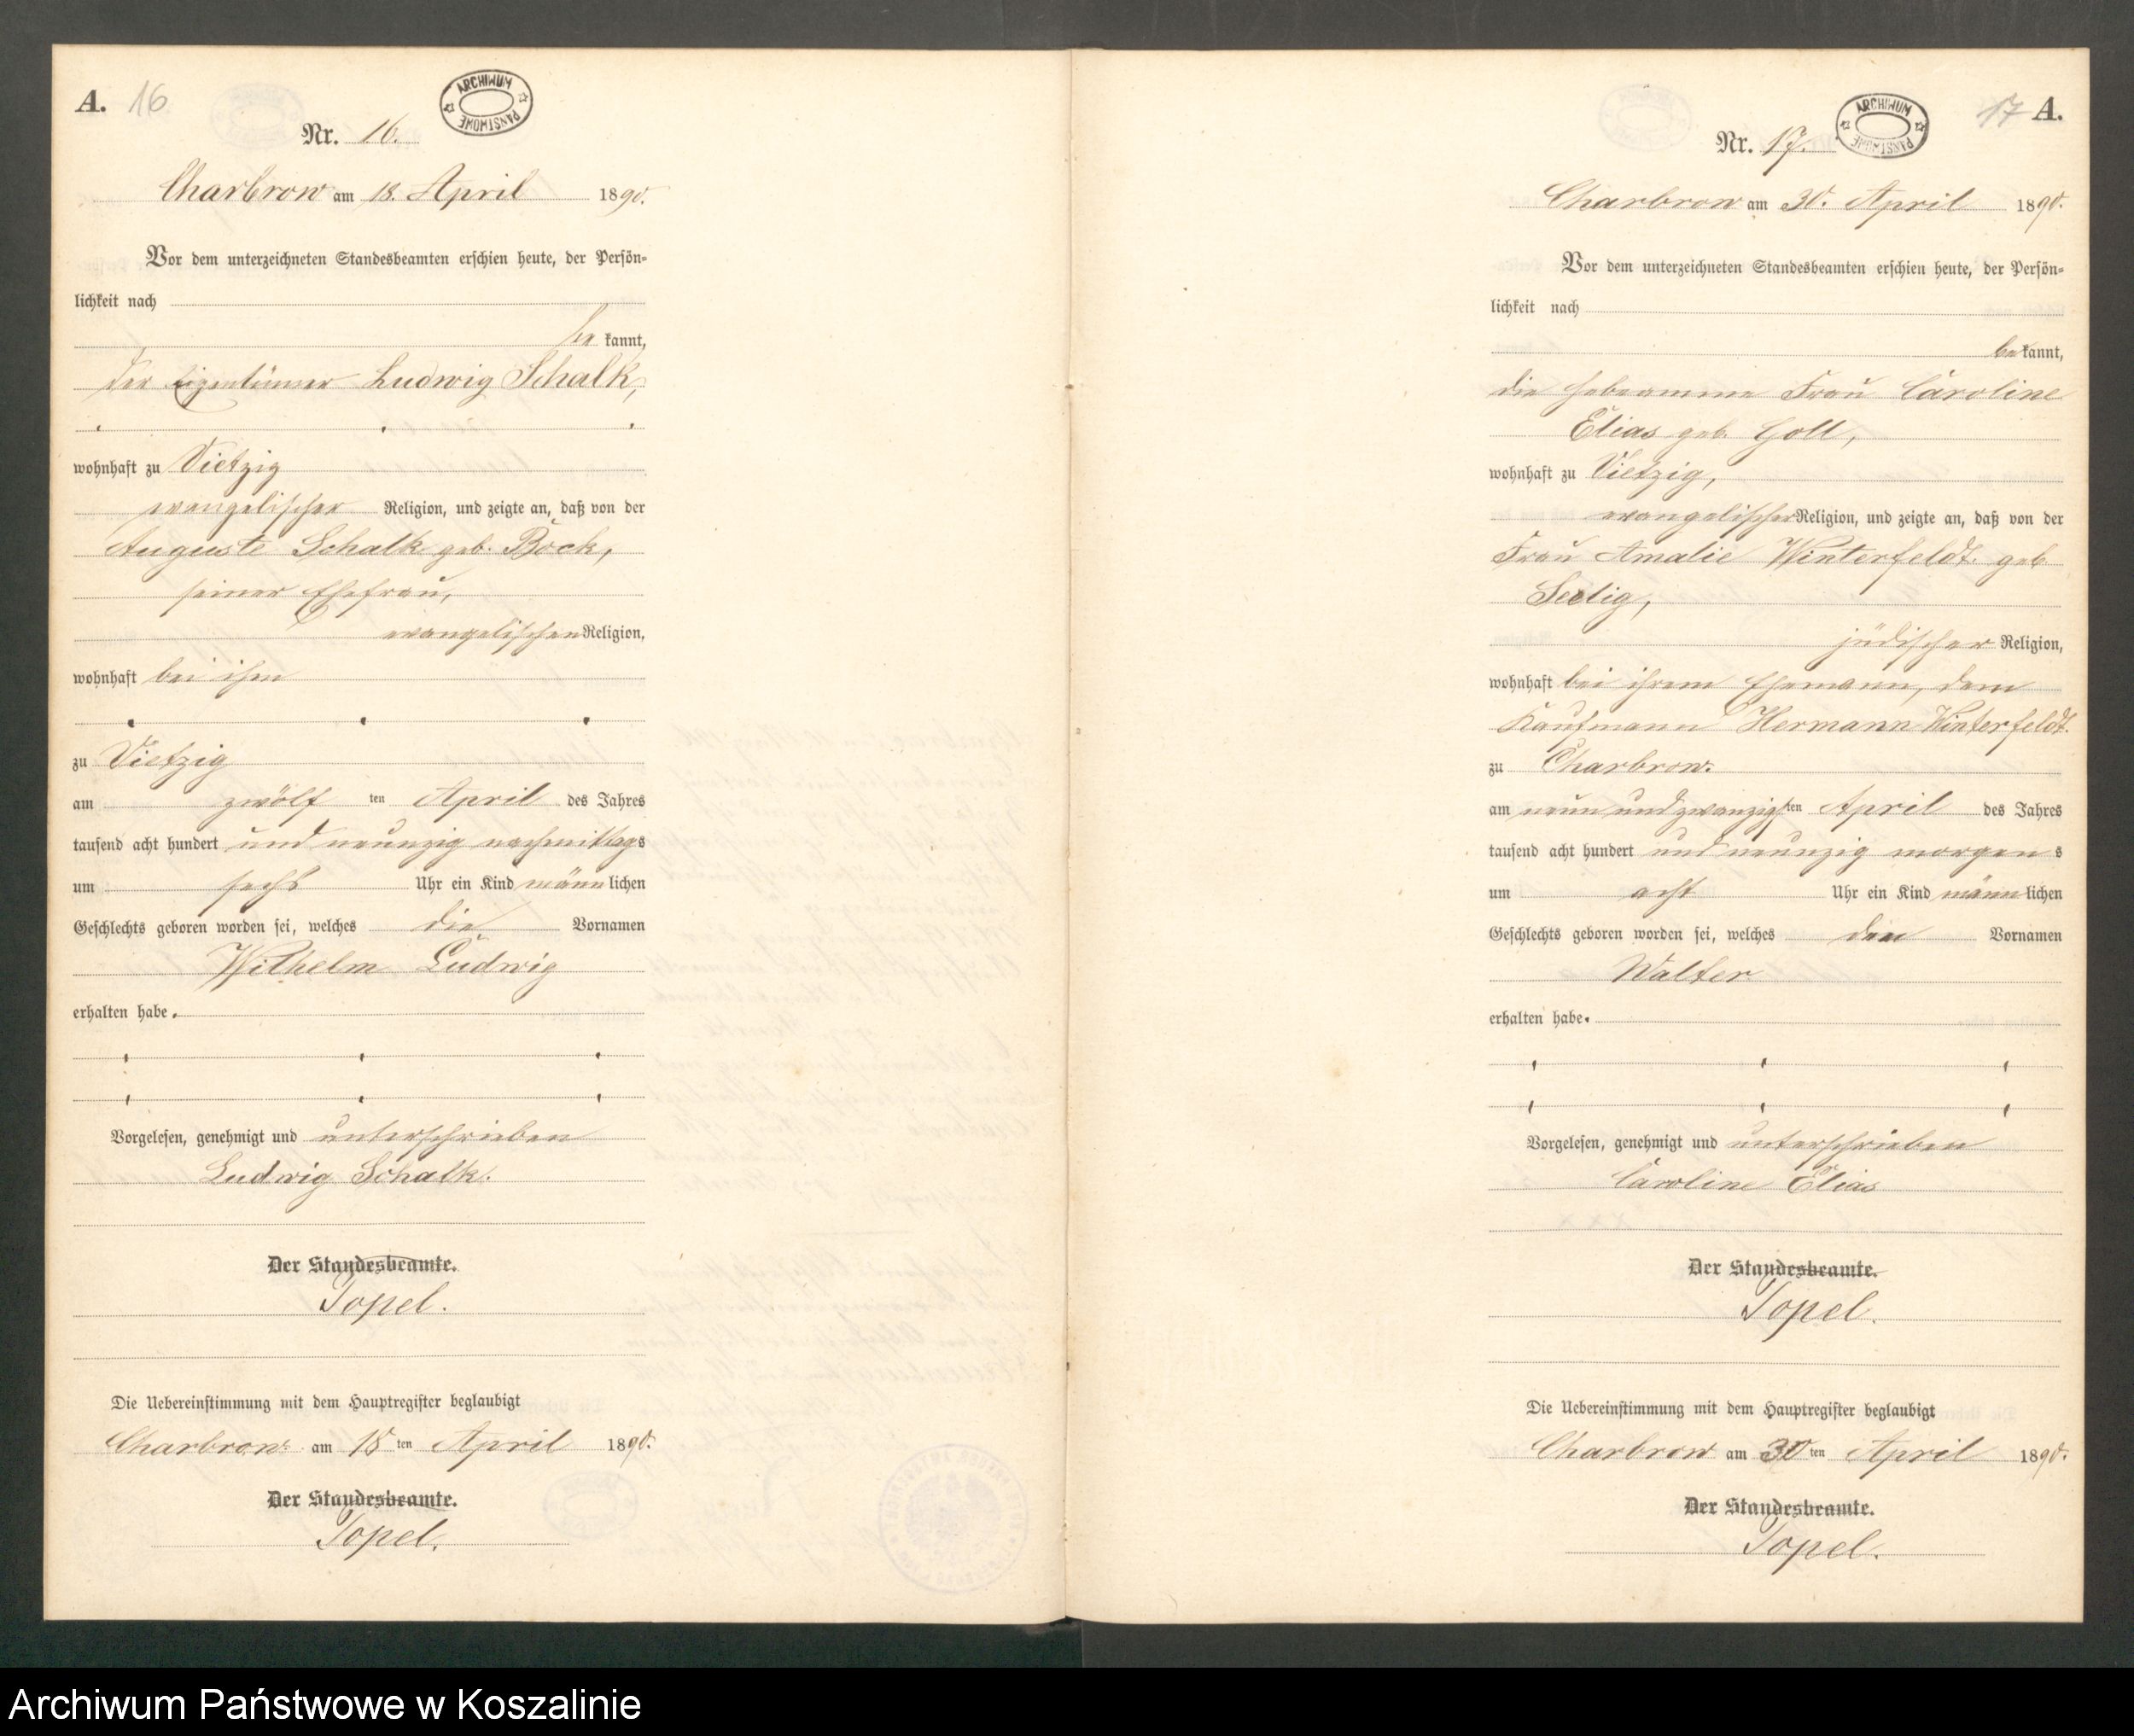 A. 16
ARCHIWUM PAŃSTWOWE
Nr. 16.
Charbrow am 18. April 1890.
Vor dem unterzeichneten Standesbeamten erschien heute, der Persön-
lichkeit nach
be kannt,
der Eigentümer Ludwig Schalk,
wohnhaft zu Vietzig
evangelischer Religion, und zeigte an, daß von der
Auguste Schalk geb. Bock,
seiner Ehefrau,
evangelischen Religion,
wohnhaft bei ihm
zu Vietzig
am zwölf ten April des Jahres
tausend acht hundert und neunzig nachmittags
um sechs Uhr ein Kind männ lichen
Geschlechts geboren worden sei, welches die Vornamen
Wilhelm Ludwig
erhalten habe.
Vorgelesen, genehmigt und unterschrieben
Ludwig Schalk.
Der Standesbeamte.
Topel.
Die Uebereinstimmung mit dem Hauptregister beglaubigt
Charbrow am 18 ten April 1890.
Der Standesbeamte.
Topel.
17 A.
ARCHIWUM PAŃSTWOWE
Nr. 17.
Charbrow am 30. April 1890.
Vor dem unterzeichneten Standesbeamten erschien heute, der Persön-
lichkeit nach
be kannt,
die Hebeamme Frau Caroline
Elias geb. Goll,
wohnhaft zu Vietzig,
evangelischer Religion, und zeigte an, daß von der
Frau Amalie Winterfeldt geb
Seelig,
jüdischer Religion,
wohnhaft bei ihrem Ehemann, dem
Kaufmann Hermann Winterfeldt.
zu Charbrow.
am neun und zwanzigsten April des Jahres
tausend acht hundert und neunzig morgen s
um acht Uhr ein Kind männ lichen
Geschlechts geboren worden sei, welches den Vornamen
Walter
erhalten habe.
Vorgelesen, genehmigt und unterschrieben
Caroline Elias
Der Standesbeamte.
Topel.
Die Uebereinstimmung mit dem Hauptregister beglaubigt
Charbrow am 30 ten April 1890.
Der Standesbeamte.
Topel.
Archiwum Państwowe w Koszalinie